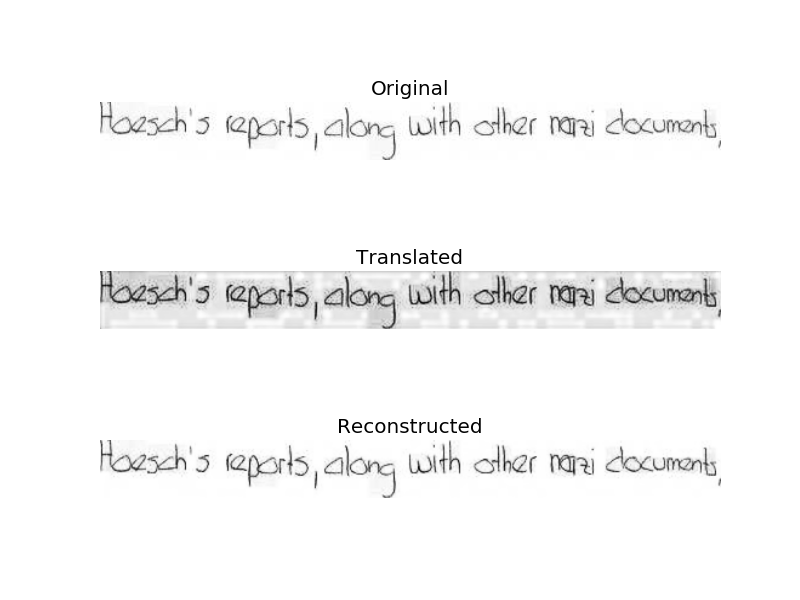 Original
Hoesch's reports, along with other nazi documents,
Translated
Hoesch's reports, along with other nazi documents,
Reconstructed
Hoesch's reports, along with other nazi documents,